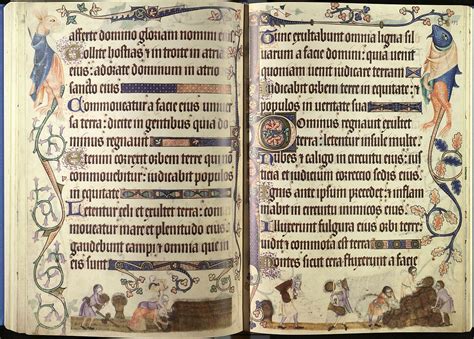 afferte domino gloriam nomini eius
Tollite hostias et introite in atria
eius: adorate dominum in atrio
sancto eius
Commoueatur a facie eius uniuer
sa terra: dicite in gentibus quia do
minus regnauit
Etenim correxit orbem terre qui no
commouebitur: iudicabit populos
in equitate
Letentur celi et exultet terra: com
moueatur mare et plenitudo eius:
gaudebunt campi et omnia que in
eis sunt
Tunc exultabunt omnia ligna sil
uarum a facie domini: quia uenit
quoniam uenit iudicare terram
Iudicabit orbem terre in equitate: et
populos in ueritate sua
Dominus regnauit exultet
terra: letentur insule multe
Nubes et caligo in circuitu eius: ius
ticia et iudicium correctio sedis eius
Ignis ante ipsum precedet et inflam
mabit in circuitu inimicos eius
Illuxerunt fulgura eius orbi terre:
uidit et commota est terra
Montes sicut cera fluxerunt a facie